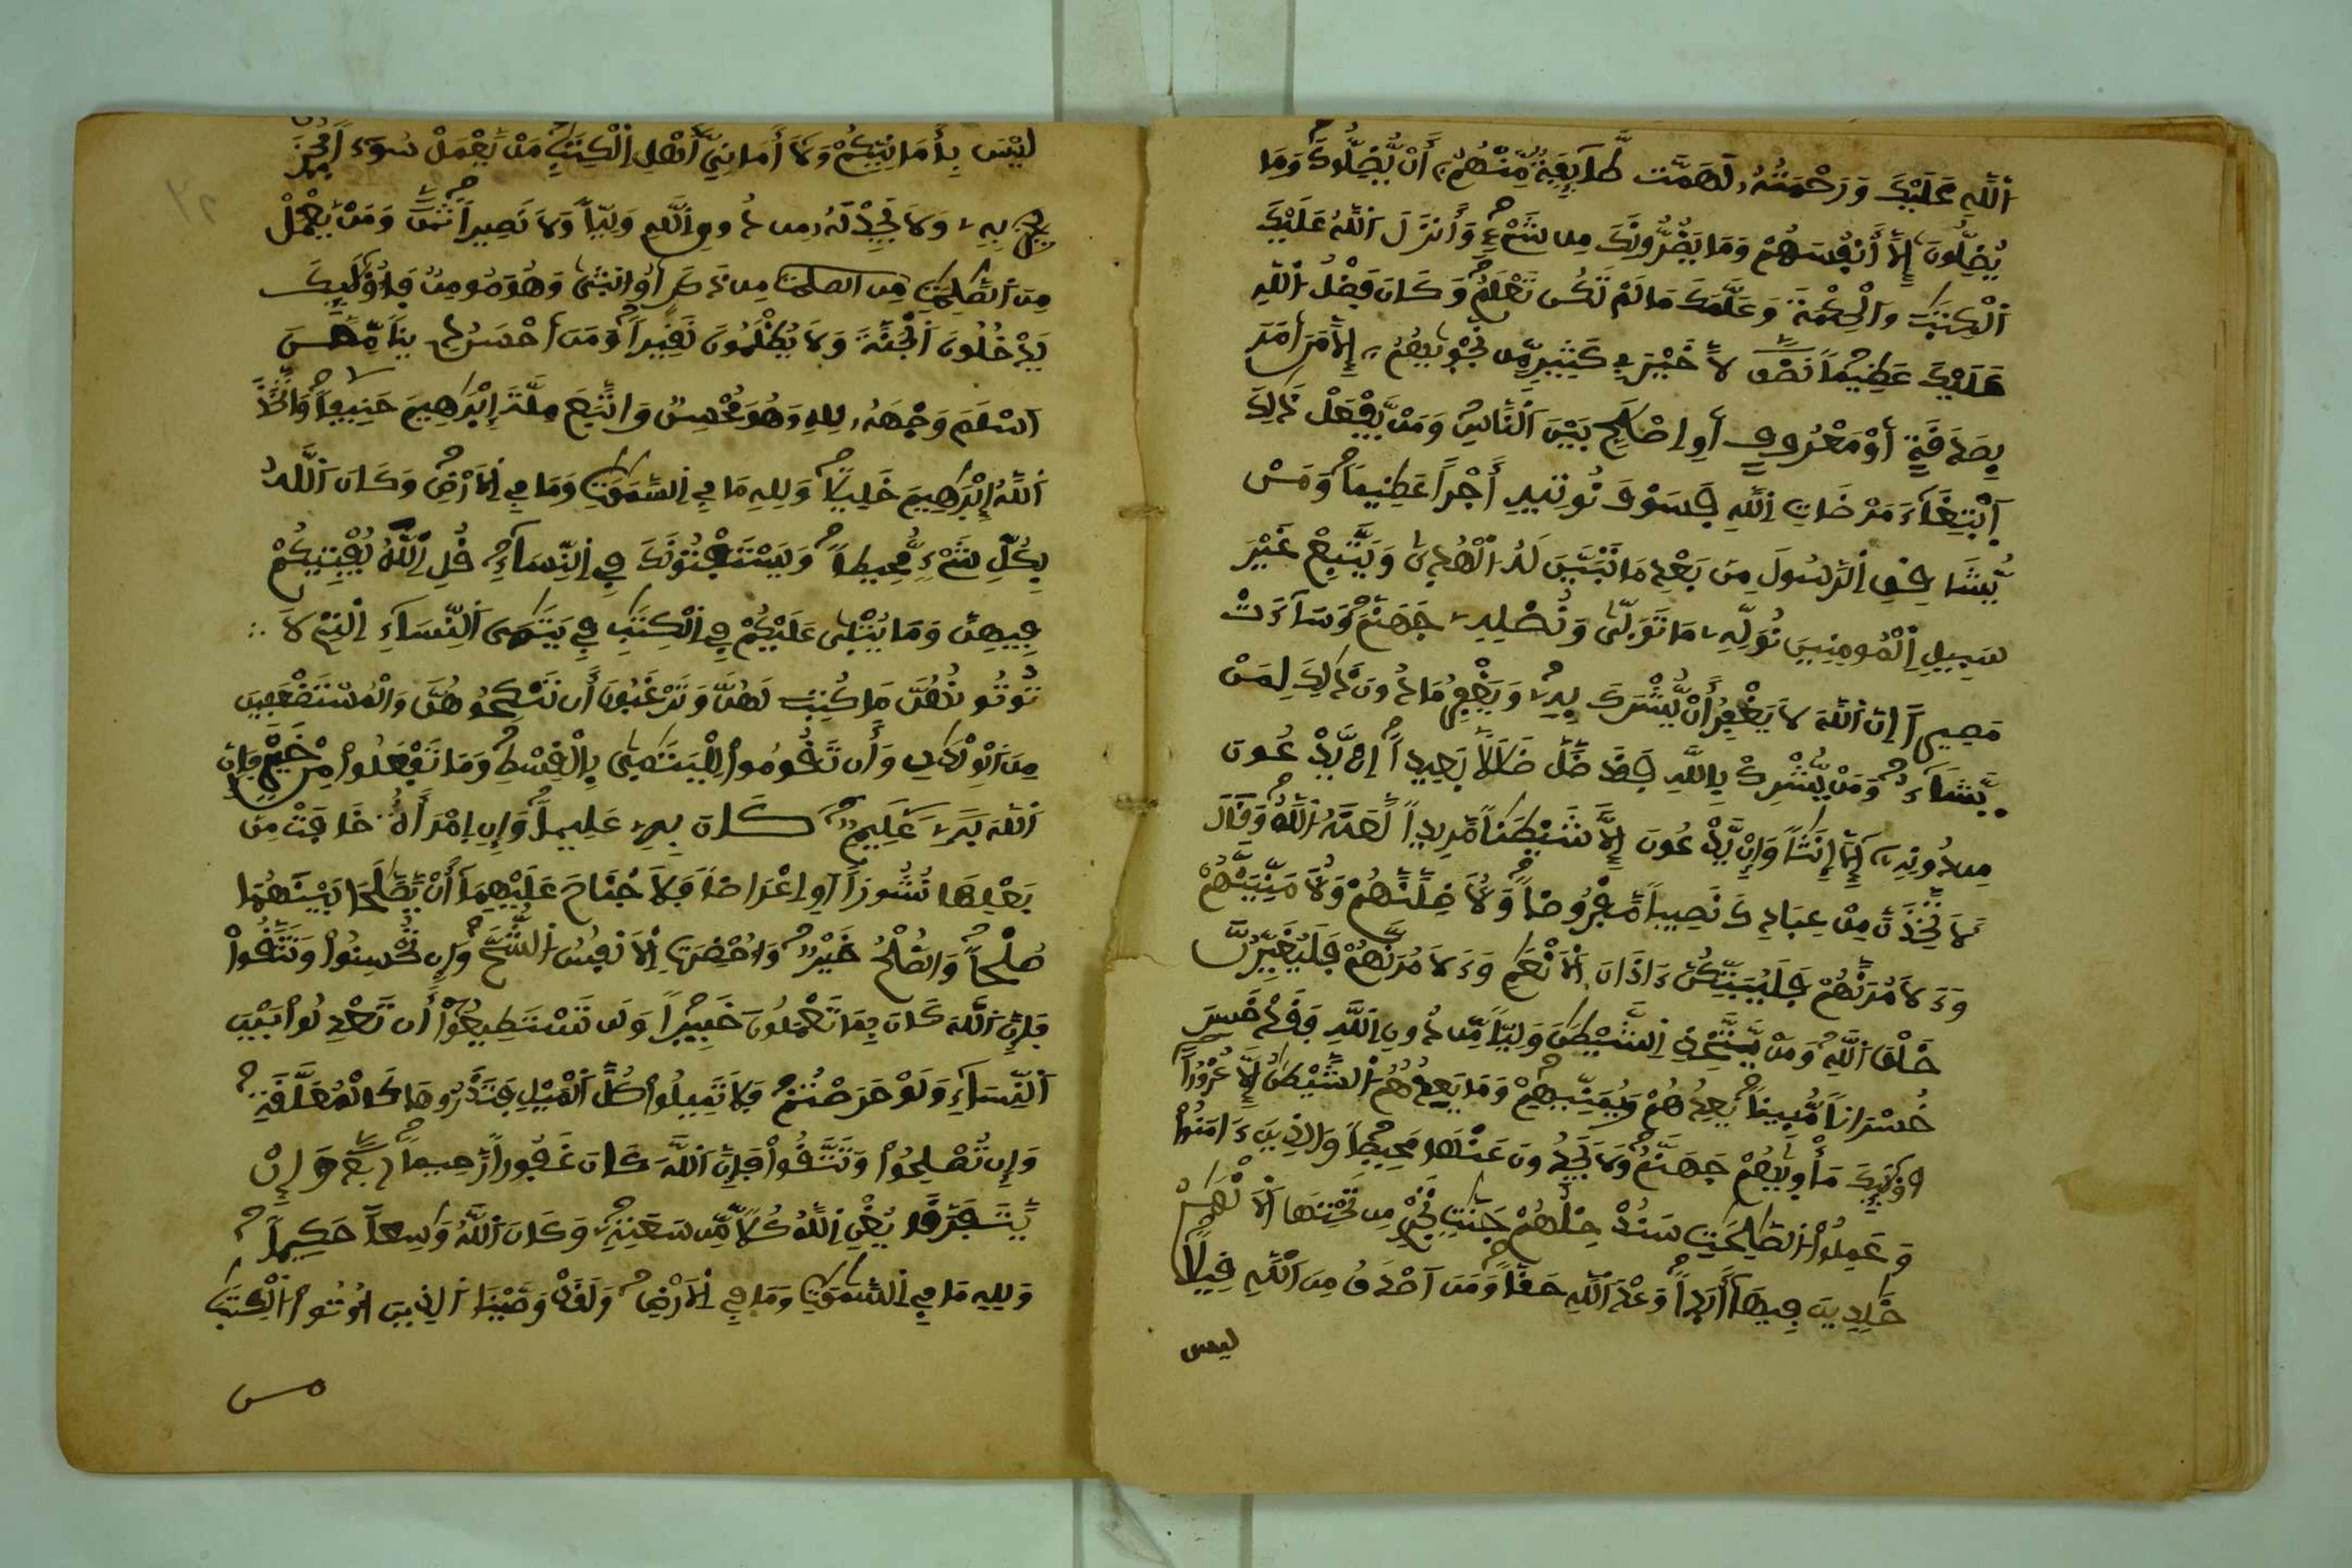 اَللَّهِ عَلَيْكَ وَرَحْمَتُهُۥ لَهَمَّت طَّآئِفَةٌ مِّنْهُمُۥٓ أَنْ يُّضِلُّوكَ وَمَا
يُضِلُّونَ إِلَّآ أَنفُسَهُمْ وَمَا يَضُرُّونَكَ مِن شَيْءٍ وَأَنزَلَ اَللَّهُ عَلَيْكَ
اَلْكِتَٰبَ وَالْحِكْمَةَ وَعَلَّمَكَ مَا لَمْ تَكُن تَعْلَمُ وَكَانَ فَضْلُ اُللَّهِ
عَلَيْكَ عَظِيماً نصف لَّا خَيْرَ فِي كَثِيرٍ مِّن نَّجْوٜيٰهُمُۥٓ إِلَّا مَنَ اَمَرَ
بِصَدَقَةٍ أَوْ مَعْرُوفٍ أَوِ اِصْلَٰحٍ بَيْنَ اَلنَّاسِ وَمَنْ يَّفْعَلْ ذَٰلِكَ
اَبْتِغَآءَ مَرْضَاتِ اِللَّهِ فَسَوْفَ نُوتِيهِ أَجْراً عَظِيماً وَمَنْ
يُّشَاقِقِ اِلرَّسُولَ مِن بَعْدِ مَا تَبَيَّنَ لَهُ اُلْهُدٜيٰ وَيَتَّبِعْ غَيْرَ
سَبِيلِ اِلْمُومِنِينَ نُوَلِّهِۦ مَا تَوَلّٜيٰ وَنُصْلِهِۦ جَهَنَّمَ وَسَآءَتْ
مَصِيراً اِنَّ اَللَّهَ لَا يَغْفِرُ أَنْ يُّشْرَكَ بِهِۦ وَيَغْفِرُ مَا دُونَ ذَٰلِكَ لِمَنْ
يَّشَآءُ وَمَنْ يُّشْرِكْ بِاللَّهِ فَقَد ضَّلَّ ضَلَٰلاً بَعِيداً اِنْ يَّدْعُونَ
مِن دُونِهِۦٓ إِلَّآ إِنَٰثاً وَإِنْ يَّدْعُونَ إِلَّا شَيْطَٰناً مَّرِيداً لَّعَنَهُ اُللَّهُ وَقَالَ
لَأَتَّخِذَنَّ مِنْ عِبَادِكَ نَصِيباً مَّفْرُوضاً وَلَأُضِلَّنَّهُمْ وَلَأُمَنِّيَنَّهُمْ
وَءَلَامُرَنَّهُمْ فَلَيُبَتِّكُنَّ ءَاذَانَ اَلْأَنْعَٰمِ وَءَلَامُرَنَّهُمْ فَلَيُغَيِّرُنَّ
خَلْقَ اَللَّهِ وَمَنْ يَّتَّخِذِ اِلشَّيْطَٰنَ وَلِيّاً مِّن دُونِ اِللَّهِ فَقَدْ خَسِرَ
خُسْرَاناً مُّبِيناً يَعِدُهُمْ وَيُمَنِّيهِمْ وَمَا يَعِدُهُمُ اُلشَّيْطَٰنُ إِلَّا غُرُوراً
اوْلَٰٓئِكَ مَأْوٜيٰهُمْ جَهَنَّمُ وَلَا يَجِدُونَ عَنْهَا مَحِيصاً وَالذِينَ ءَامَنُواْ
وَعَمِلُواْ اُلصَّٰلِحَٰتِ سَنُدْخِلُهُمْ جَنَّٰتٍ تَجْرِي مِن تَحْتِهَا اَلْأَنْهَٰرُ
خَٰلِدِينَ فِيهَآ أَبَداً وَعْدَ اَللَّهِ حَقّاً وَمَنَ اَصْدَقُ مِنَ اَللَّهِ قِيلاً
ليس
لَيْسَ بِأَمَانِيِّكُمْ وَلَآ أَمَانِيِّ أَهْلِ اِلْكِتَٰبِ مَنْ يَّعْمَلْ سُوٓءاً يُجْزَ
بِهِۦ وَلَا يَجِدْ لَهُۥ مِن دُونِ اِللَّهِ وَلِيّاً وَلَا نَصِيراً ثمن وَمَنْ يَّعْمَلْ
مِنَ اَلصَّٰلِحَٰتِ من الصلحت مِن ذَكَرٍ اَوُ ا۟نث۪يٰ وَهُوَ مُومِنٌ فَأُوْلَٰٓئِكَ
يَدْخُلُونَ اَلْجَنَّةَ وَلَا يُظْلَمُونَ نَقِيراً وَمَنَ اَحْسَنُ دِيناً مِّمَّنَ
اَسْلَمَ وَجْهَهُۥ لِلهِ وَهُوَ مُحْسِنٌ وَاتَّبَعَ مِلَّةَ إِبْرَٰهِيمَ حَنِيفاً وَاتَّخَذَ
اَللَّهُ إِبْرَٰهِيمَ خَلِيلاً وَلِلهِ مَا فِي اِلسَّمَٰوَٰتِ وَمَا فِي اِلْأَرْضِ وَكَانَ اَللَّهُ
بِكُلِّ شَيْءٍ مُّحِيطاً وَيَسْتَفْتُونَكَ فِي اِلنِّسَآءِ قُلِ اِللَّهُ يُفْتِيكُمْ
فِيهِنَّ وَمَا يُتْلٜيٰ عَلَيْكُمْ فِي اِلْكِتَٰبِ فِي يَتَٰمَى اَلنِّسَآءِ اِلٰتِي لَا
تُوتُونَهُنَّ مَا كُتِبَ لَهُنَّ وَتَرْغَبُونَ أَن تَنكِحُوهُنَّ وَالْمُسْتَضْعَفِينَ
مِنَ اَلْوِلْدَٰنِ وَأَن تَقُومُواْ لِلْيَتَٰمٜيٰ بِالْقِسْطِ وَمَا تَفْعَلُواْ مِنْ خَيْرٍ فَإِنَّ
اَللَّهَ كَانَ بِهِۦ عَلِيماً وَإِنِ اِمْرَأَةٌ خَافَتْ مِنۢ
بَعْلِهَا نُشُوزاً اَوِ اِعْرَاضاً فَلَا جُنَاحَ عَلَيْهِمَآ أَنْ يَّصَّٰلَحَا بَيْنَهُمَا
صُلْحاً وَالصُّلْحُ خَيْرٌ وَأُحْضِرَتِ اِلْأَنفُسُ اُلشُّحَّ وَإِن تُحْسِنُواْ وَتَتَّقُواْ
فَإِنَّ اَللَّهَ كَانَ بِمَا تَعْمَلُونَ خَبِيراً وَلَن تَسْتَطِيعُوٓاْ أَن تَعْدِلُواْ بَيْنَ
اَلنِّسَآءِ وَلَوْ حَرَصْتُمْ فَلَا تَمِيلُواْ كُلَّ اَلْمَيْلِ فَتَذَرُوهَا كَالْمُعَلَّقَةِ
وَإِن تُصْلِحُواْ وَتَتَّقُواْ فَإِنَّ اَللَّهَ كَانَ غَفُوراً رَّحِيماً وَإِنْ
يَّتَفَرَّقَا يُغْنِ اِللَّهُ كُلّاً مِّن سَعَتِهِۦ وَكَانَ اَللَّهُ وَٰسِعاً حَكِيماً
وَلِلهِ مَا فِي اِلسَّمَٰوَٰتِ وَمَا فِي اِلْأَرْضِ وَلَقَدْ وَصَّيْنَا اَلذِينَ أُوتُواْ اُلْكِتَٰبَ
من